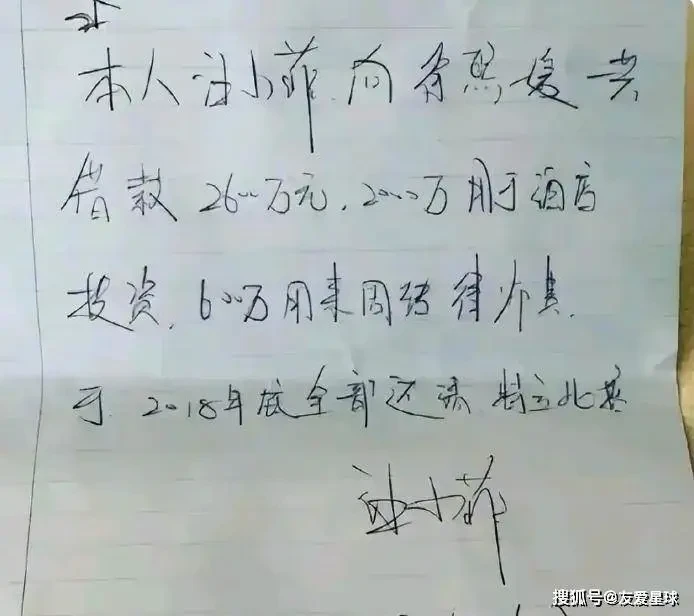 本人汪小菲向徐熙媛共
借款2600万元,2000万用于酒店
投资,600万用来周转律师费,
于2018年底全部还清 特立此据
汪小菲
搜狐号@友爱星球